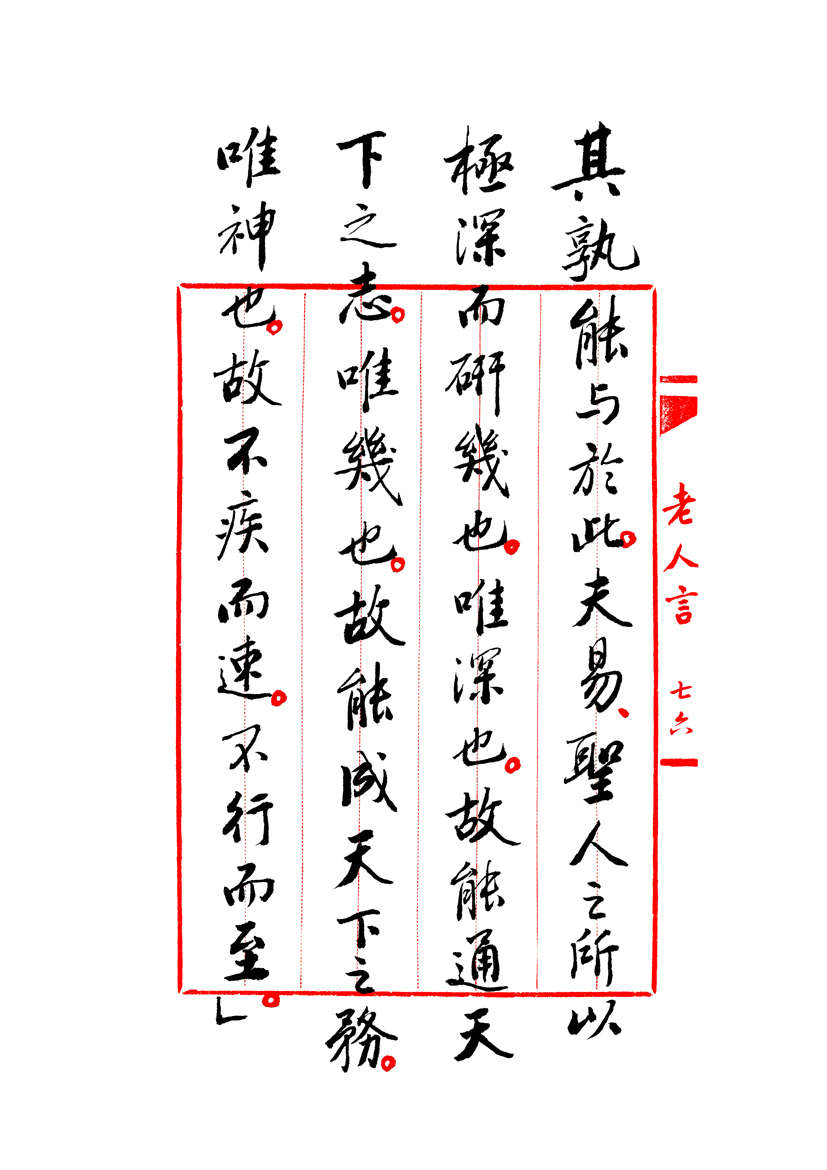 其孰能与於此。夫易、聖人之所以
極深而研幾也。唯深也。故能通天
下之志。唯幾也。故能成天下之務。
唯神也。故不疾而速。不行而至。」
老人言
七六